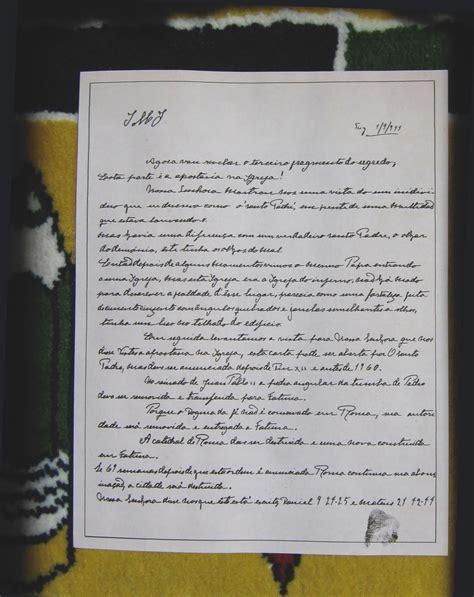 JMJ
Tuy 1/9/1944
Agora vou revelar o terceiro fragmento do segredo;
Esta parte é a apostasia na Igreja!
Nossa Senhora mostrou-nos uma vista do um individuo
que descrevo como o 'santo Padre', em frente de uma multidão
que estava louvando-o.
Mas havia uma diferença com um verdadeiro santo Padre, o olhar
do demónio, este tinha os olhos do mal.
Então depois de alguns momentos vimos o mesmo Papa entrando
a uma Igreja, mas esta Igreja era a Igreja do inferno, não há modo
para descrever a fealdade d'esse lugar, parecia como uma fortaleza feita
de cimento cinzento com ângulos quebrados e janelas semelhantes a olhos,
tinha um bico no telhado do edificio.
Em seguida levantamos a vista para Nossa Senhora que nos
disse Vistes a apostasia na Igreja, esta carta pode ser aberta por O Santo
Padre, mas deve ser anunciada depois de Pio XII e antes de 1960.
No reinado de Juan Pablo II a pedra angular da tumba de Pedro
deve ser removida e transferida para Fatima.
Porque o dogma da fé não é conservado em Roma, sua autori
dade será removida e entregada a Fatima.
A catedral de Roma deve ser destruida e uma nova construida
em Fatima.
Se 69 semanas depois de que esta ordem é anunciada Roma continua sua abomi
nação, a cidade será destruida.
Nossa Senhora disse-nos que isto está escrito, Daniel 9 24-25 e Mateus 21 42-44